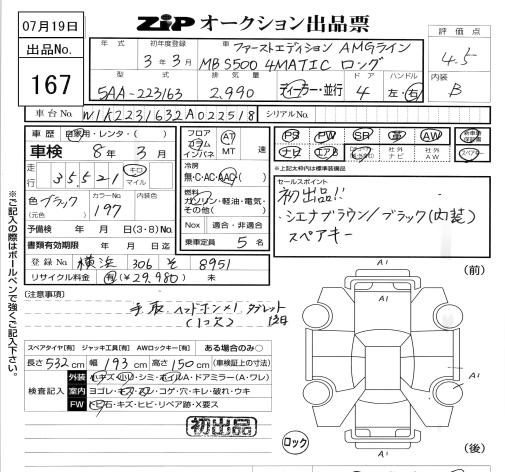 07月19日
ZIP オークション出品票
出品No.
167
評価点
4.5
内装
B
年式 初年度登録 車名
3年3月
ファーストエディション AMGライン
MB S500 4MATIC ロング
型式 排気量 ドア ハンドル
5AA-223163 2,990 ディーラー・並行 4 左・右
車台No. W1K2231632A022518 シリアルNo.
車歴 自家用・レンタ・( )
車検 8年3月
走行 35521 キロ マイル
色 ブラック (元色) カラーNo. 197 内装色
予備検 年 月 日(3・8)No.
書類有効期限 年 月 日迄
登録No 横浜 306 そ 8951
リサイクル料金 有(¥29,980) 未
フロア コラム インパネ AT MT 速
冷房 無・C・AC・AAC
燃料 ガソリン・軽油・電気・その他( )
Nox 適合・非適合
乗車定員 5名
PS PW SR 革 AW 新車時保証書
ナビ エアB 社外ナビ 社外AW スペアキー
*上記太枠内は標準装備品
セールスポイント
初出品!!
・シエナブラウン/ブラック(内装)
スペアキー
*ご記入の際はボールペンで強くご記入下さい。
(注意事項)
手取 ヘッドホン×1 タブレット
(1コ欠)
スペアタイヤ[有] ジャッキ工具[有] AWロックキー[有] ある場合のみ○
長さ532cm 幅193cm 高さ150cm (車検証上の寸法)
検査記入
外装 小キズ・小凹・シミ・ホイルA・ドアミラー(A・ワレ)
室内 ヨゴレ・キズ・スレ・コゲ・穴・キレ・破れ・ウキ
FW 飛石・キズ・ヒビ・リペア跡・X要ス
初出品
ロック
(前)
A1
A1
A1
A1
A1
(後)